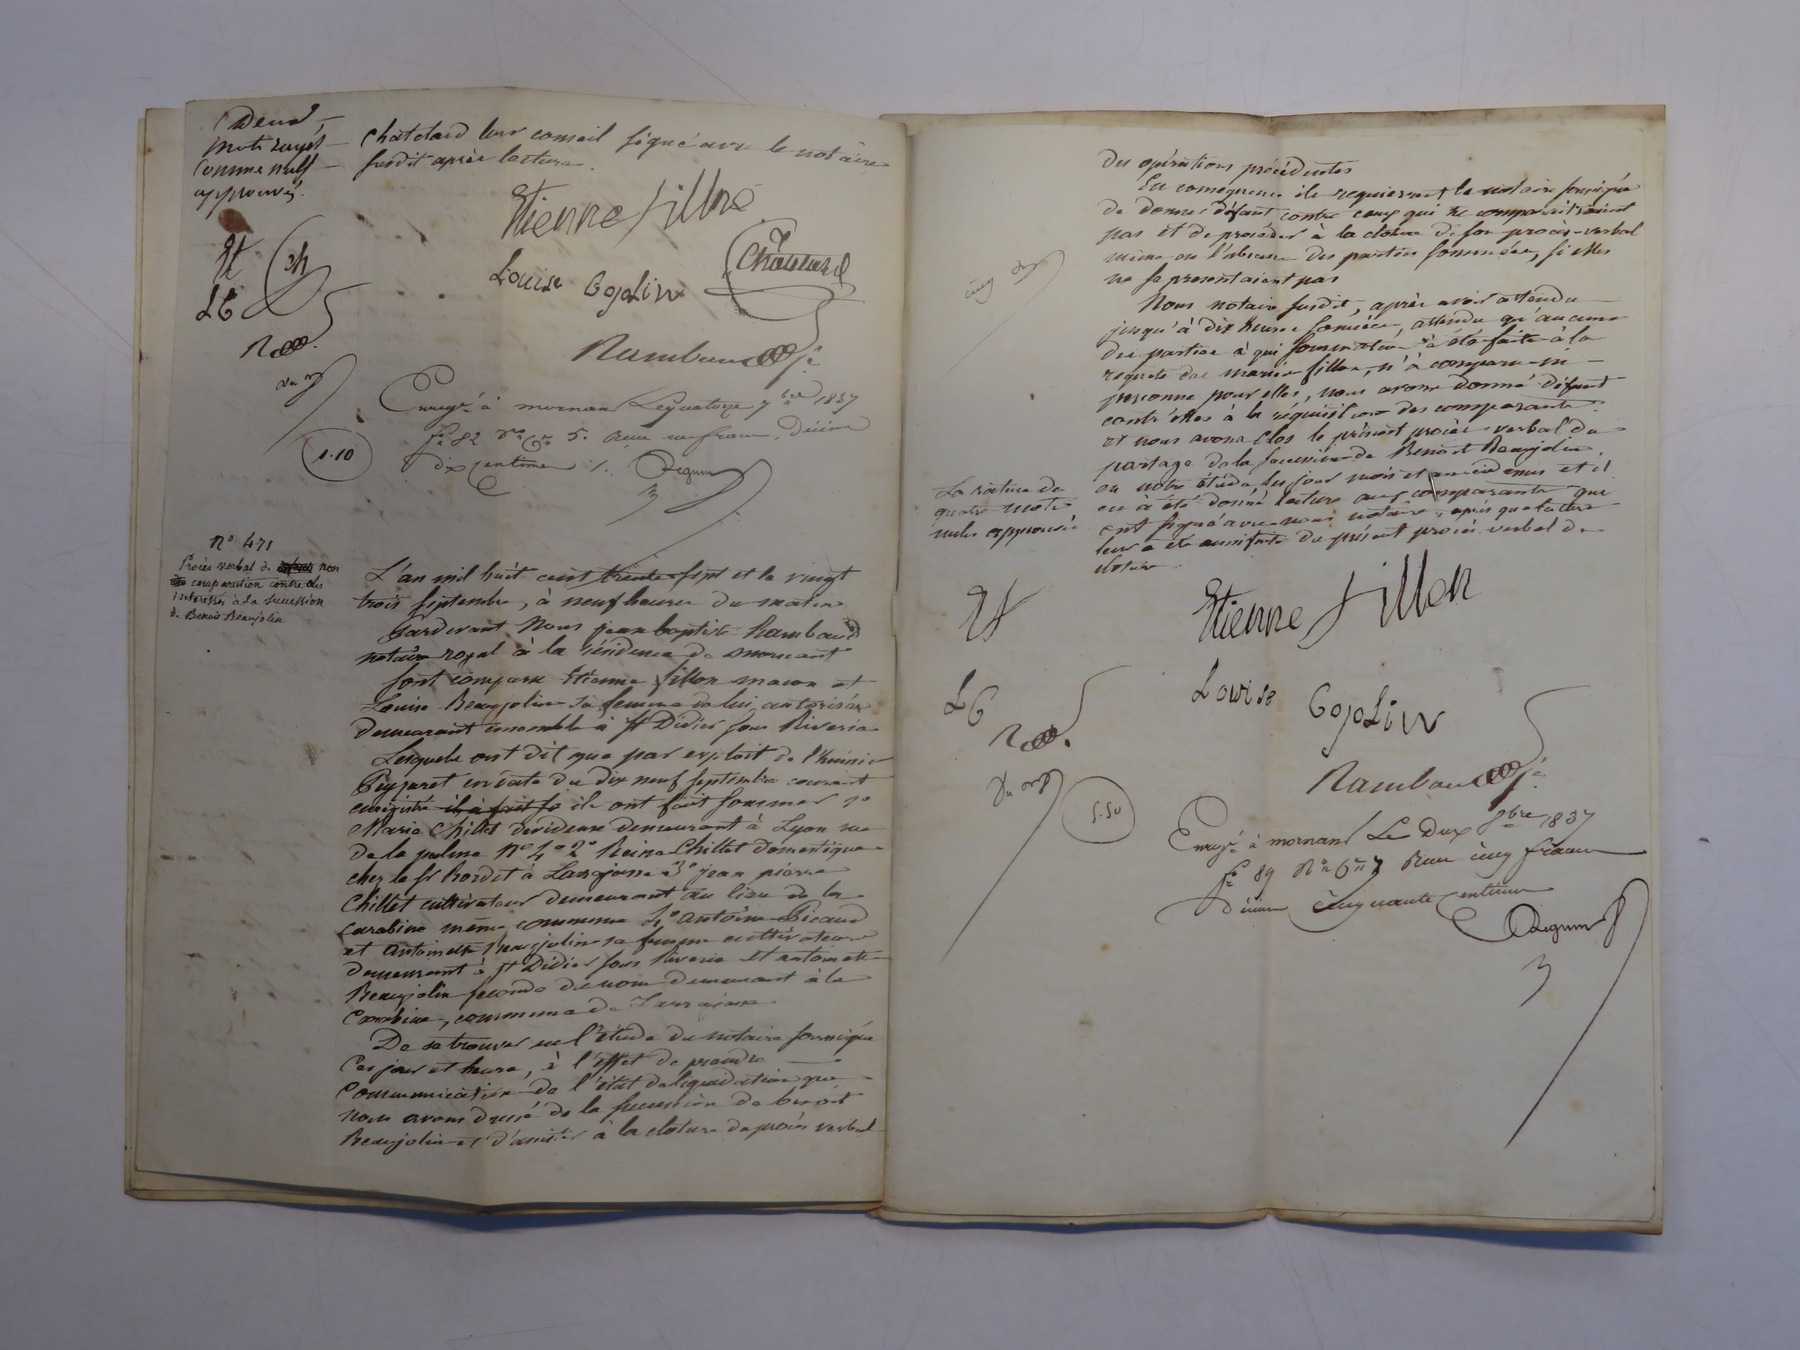 Deux
mots rayés
comme nuls
approuvés.
Chatelard leur conseil signé avec le notaire
susdit après lecture.
Etienne fillon
Chatelard
Louise Bojolin
Rambaud
Et
Ch
LB
R
Enregé à mornant Le quatorze 7bre 1837
fo 82 Vo Co 5. Reçu un franc, Décime
dix centimes
Degum
1.10
No 471
Procès verbal de non
comparution contre les
interessés à la succession
de Benoit Beaujolin
L'an mil huit cent trente sept et le vingt
trois septembre, à neuf heures du matin
Pardevant Nous jean baptiste Rambaud
notaire royal à la résidence de mornant
sont comparu Etienne fillon macon et
Louise Beaujolin sa femme de lui autorisée
demeurant ensemble à St Didier sous Riverie
Lesquels ont dit que par exploit de l'huissier
Peyzaret en date du dix neuf septembre courant
enregistré il a fait so ils ont fait sommer 1o
Marie Chillet devideuse demeurant à Lyon rue
de la palme no 4 2o Reine Chillet domestique
chez le sr Bordet à Larajasse 3o jean pierre
Chillet cultivateur demeurant au lieu de la
Carabine même commune 4o antoine Picaud
et antoinette Beaujolin sa femme cultivateurs
demeurant à St Didier sous Riverie et antoinette
Beaujolin seconde du nom demeurant à la
Carabine, commune de Larajasse
De se trouver en l'étude du notaire soussigné
Ces jour et heure, à l'effet de prendre
Communication de l'état de liquidation que
nous avons dressé de la succession de benoit
Beaujolin et d'assister à la cloture du procès verbal
des opérations précédentes
En conséquence ils requierrent le notaire soussigné
de donner défaut contre ceux qui ne comparaitraient
pas et de procéder à la cloture de son procès-verbal
même en l'absence des parties sommées, si elles
ne se presentaient pas
Nous notaire susdit, après avoir attendu
jusqu'à dix heures sonnées, attendu qu'aucune
des parties à qui sommation a été faite à la
requete des mariés fillon, n'a comparu ni
personne pour elles, nous avons donné défaut
contr'elles à la réquisition des comparants
et nous avons clos le présent procès-verbal du
partage de la succession de Benoit Beaujolin,
en notre étude, les jour mois et an ci dessus et il
en à été donné lecture aux comparants qui
ont signé avec nous notaire, après que lecture
leur a été aussi faite du présent procès verbal de
cloture
La rature de
quatre mots
nuls approuvée
Et
LB
R
Etienne fillon
Louise Bojolin
Rambaud
5.50
Enregé à mornant Le Deux 8bre 1837
fo 89 Ro Co 7 Reçu cinq francs
Décime cinquante centimes
Degum